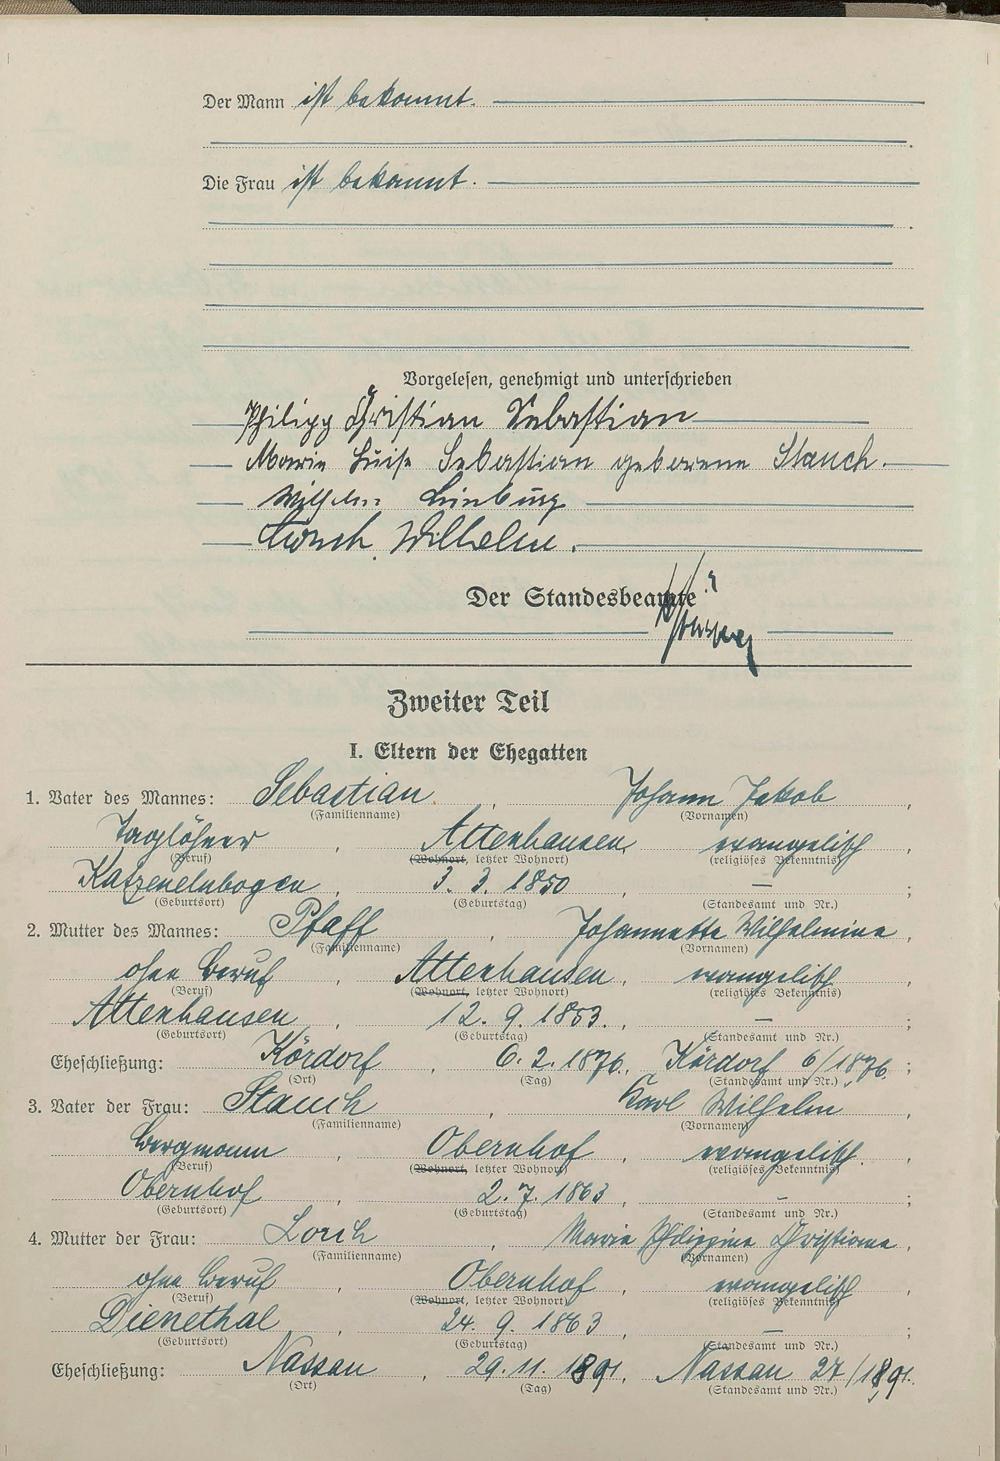 Der Mann ist bekannt.
Die Frau ist bekannt.
Vorgelesen, genehmigt und unterschrieben
Philipp Christian Sebastian
Marie Luise Sebastian geborene Stauch.
Wilhelm Limburg
Lorch Wilhelm.
Der Standesbeamte
Zweiter Teil
I. Eltern der Ehegatten
1. Vater des Mannes: Sebastian, Johann Jakob,
(Familienname) (Vornamen)
Taglöhner, Attenhausen, evangelisch
(Beruf) (Wohnort, letzter Wohnort) (religiöses Bekenntnis)
Katzenelnbogen, 3. 3. 1850, — ;
(Geburtsort) (Geburtstag) (Standesamt und Nr.)
2. Mutter des Mannes: Pfaff, Johannette Wilhelmine,
(Familienname) (Vornamen)
ohne Beruf, Attenhausen, evangelisch
(Beruf) (Wohnort, letzter Wohnort) (religiöses Bekenntnis)
Attenhausen, 12. 9. 1853., — ;
(Geburtsort) (Geburtstag) (Standesamt und Nr.)
Eheschließung: Kördorf, 6. 2. 1876., Kördorf 6/1876 ;
(Ort) (Tag) (Standesamt und Nr.)
3. Vater der Frau: Stauch, Karl Wilhelm,
(Familienname) (Vornamen)
Bergmann, Obernhof, evangelisch.
(Beruf) (Wohnort, letzter Wohnort) (religiöses Bekenntnis)
Obernhof, 2. 7. 1863, - ;
(Geburtsort) (Geburtstag) (Standesamt und Nr.)
4. Mutter der Frau: Lorch, Marie Philippine Christiane,
(Familienname) (Vornamen)
ohne Beruf, Obernhof, evangelisch
(Beruf) (Wohnort, letzter Wohnort) (religiöses Bekenntnis)
Dienethal, 24. 9. 1863, — ;
(Geburtsort) (Geburtstag) (Standesamt und Nr.)
Eheschließung: Nassau, 29. 11. 1891., Nassau 27/1891.
(Ort) (Tag) (Standesamt und Nr.)